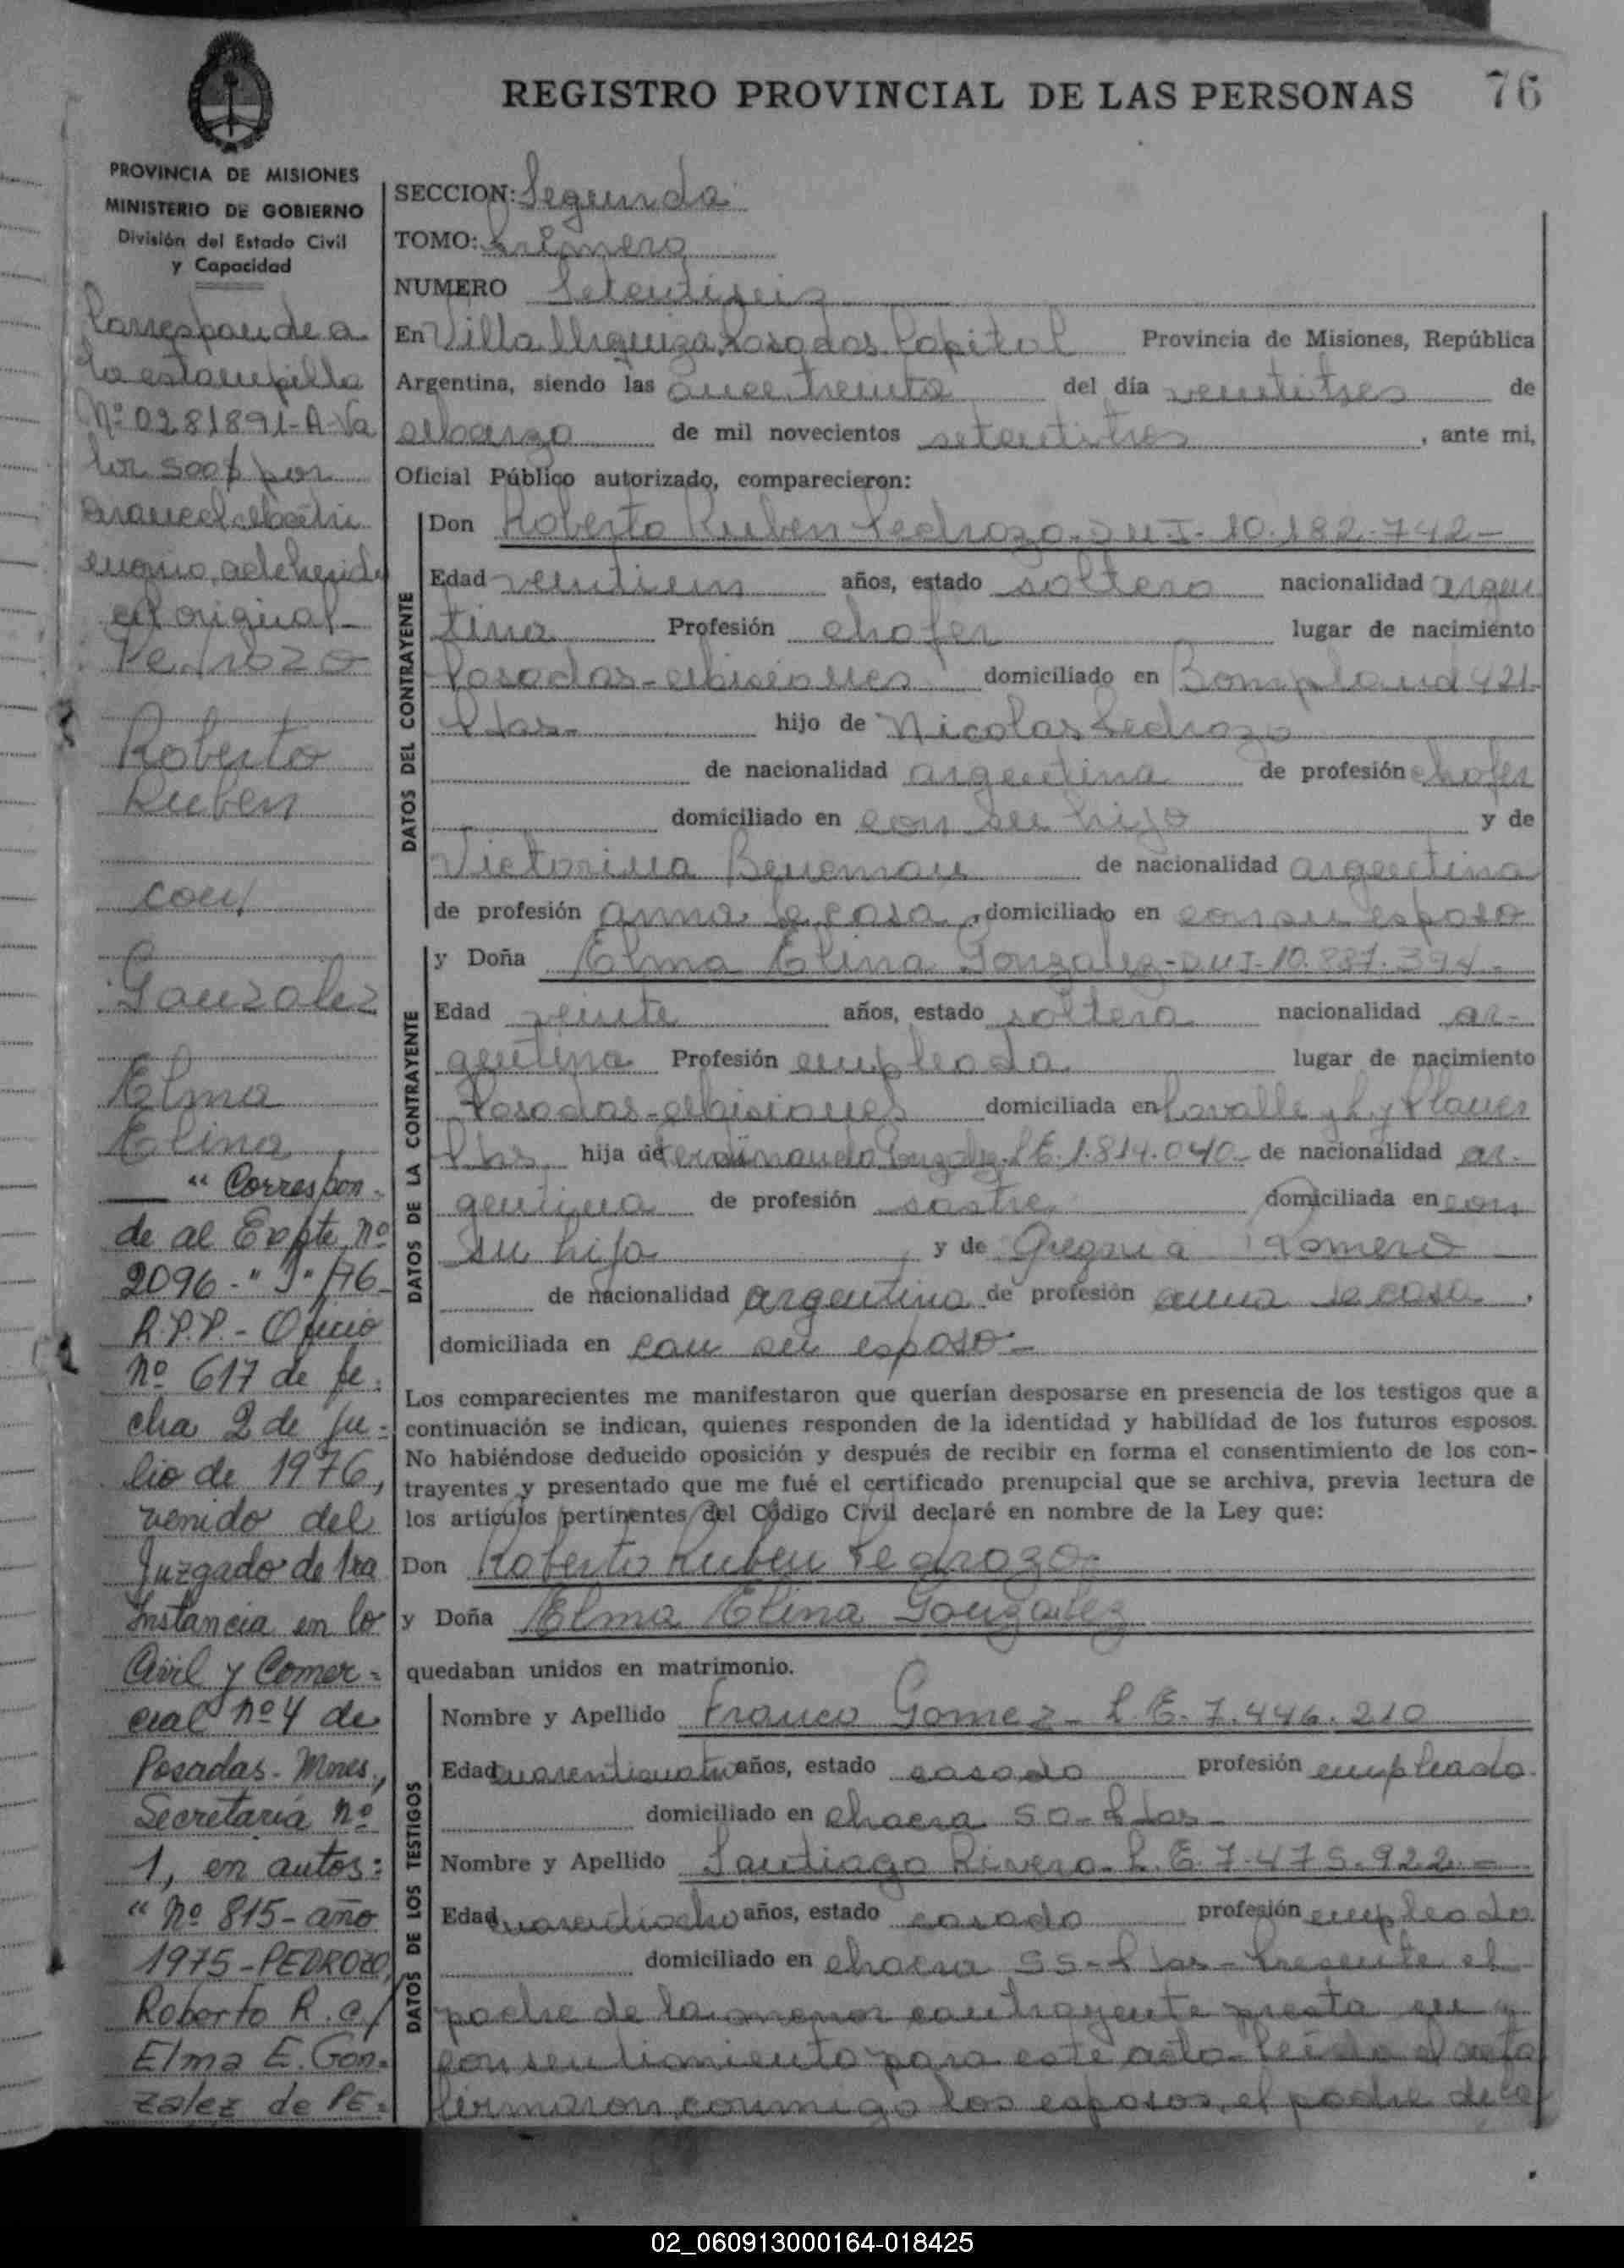 REGISTRO PROVINCIAL DE LAS PERSONAS 76
PROVINCIA DE MISIONES
MINISTERIO DE GOBIERNO
División del Estado Civil
y Capacidad
Corresponde a
la estampilla
Nº 0281891-A-Va
lor 500$ por
arancel matri
monio, adherida
al original-
Pedrozo
Roberto
Ruben
con/
Gonzalez
Elma
Elina
"Correspon-
de al Expte. nº
2096-"J"/76-
R.P.P.- Oficio
nº 617 de fe-
cha 2 de Ju-
lio de 1976,
venido del
Juzgado de 1ra
Instancia en lo
Civil y Comer-
cial nº 4 de
Posadas-Mnes.,
Secretaría nº
1, en autos:
"nº 815-año
1975-PEDROZO,
Roberto R. c/
Elma E. Gon-
zalez de PE-
SECCION: Segunda
TOMO: Primero
NUMERO Setentiseis
En Villa Urquiza, Posadas Capital Provincia de Misiones, República
Argentina, siendo las once treinta del día veintitres de
Marzo de mil novecientos setentitres, ante mi,
Oficial Público autorizado, comparecieron:
DATOS DEL CONTRAYENTE
Don Roberto Ruben Pedrozo-DUI-10.182.742-
Edad veintiun años, estado soltero nacionalidad argen
tina Profesión chofer lugar de nacimiento
Posadas-Misiones domiciliado en Bompland 421
Pdas- hijo de Nicolas Pedrozo
de nacionalidad argentina de profesión chofer
domiciliado en con su hijo y de
Victorina de nacionalidad argentina
de profesión ama de casa, domiciliado en con su esposo
DATOS DE LA CONTRAYENTE
y Doña Elma Elina Gonzalez-DUI-10.887.394-
Edad veinte años, estado soltera nacionalidad ar-
gentina Profesión empleada lugar de nacimiento
Posadas-Misiones domiciliada en Lavalle y L. y Planes
Pds hija de Gonzalez-LE.1.814.040- de nacionalidad ar-
gentina de profesión sastre domiciliada en con
su hija y de Gregoria Romero
de nacionalidad argentina de profesión ama de casa,
domiciliada en con su esposo-
Los comparecientes me manifestaron que querían desposarse en presencia de los testigos que a
continuación se indican, quienes responden de la identidad y habilidad de los futuros esposos.
No habiéndose deducido oposición y después de recibir en forma el consentimiento de los con-
trayentes y presentado que me fué el certificado prenupcial que se archiva, previa lectura de
los artículos pertinentes del Código Civil declaré en nombre de la Ley que:
Don Roberto Ruben Pedrozo-
y Doña Elma Elina Gonzalez
quedaban unidos en matrimonio.
DATOS DE LOS TESTIGOS
Nombre y Apellido Franco Gomez-L.E.7.446.210
Edad cuarenticuatro años, estado casado profesión empleado
domiciliado en chacra 50-Pdas-
Nombre y Apellido Santiago Rivero-L.E.7.475.922-
Edad cuarentiocho años, estado casado profesión empleado
domiciliado en chacra 55-Pdas-Presente el
padre de la menor contrayente presta su
consentimiento para este acto-Leida el acta
firmaron conmigo los esposos, el padre de la
02_060913000164-018425